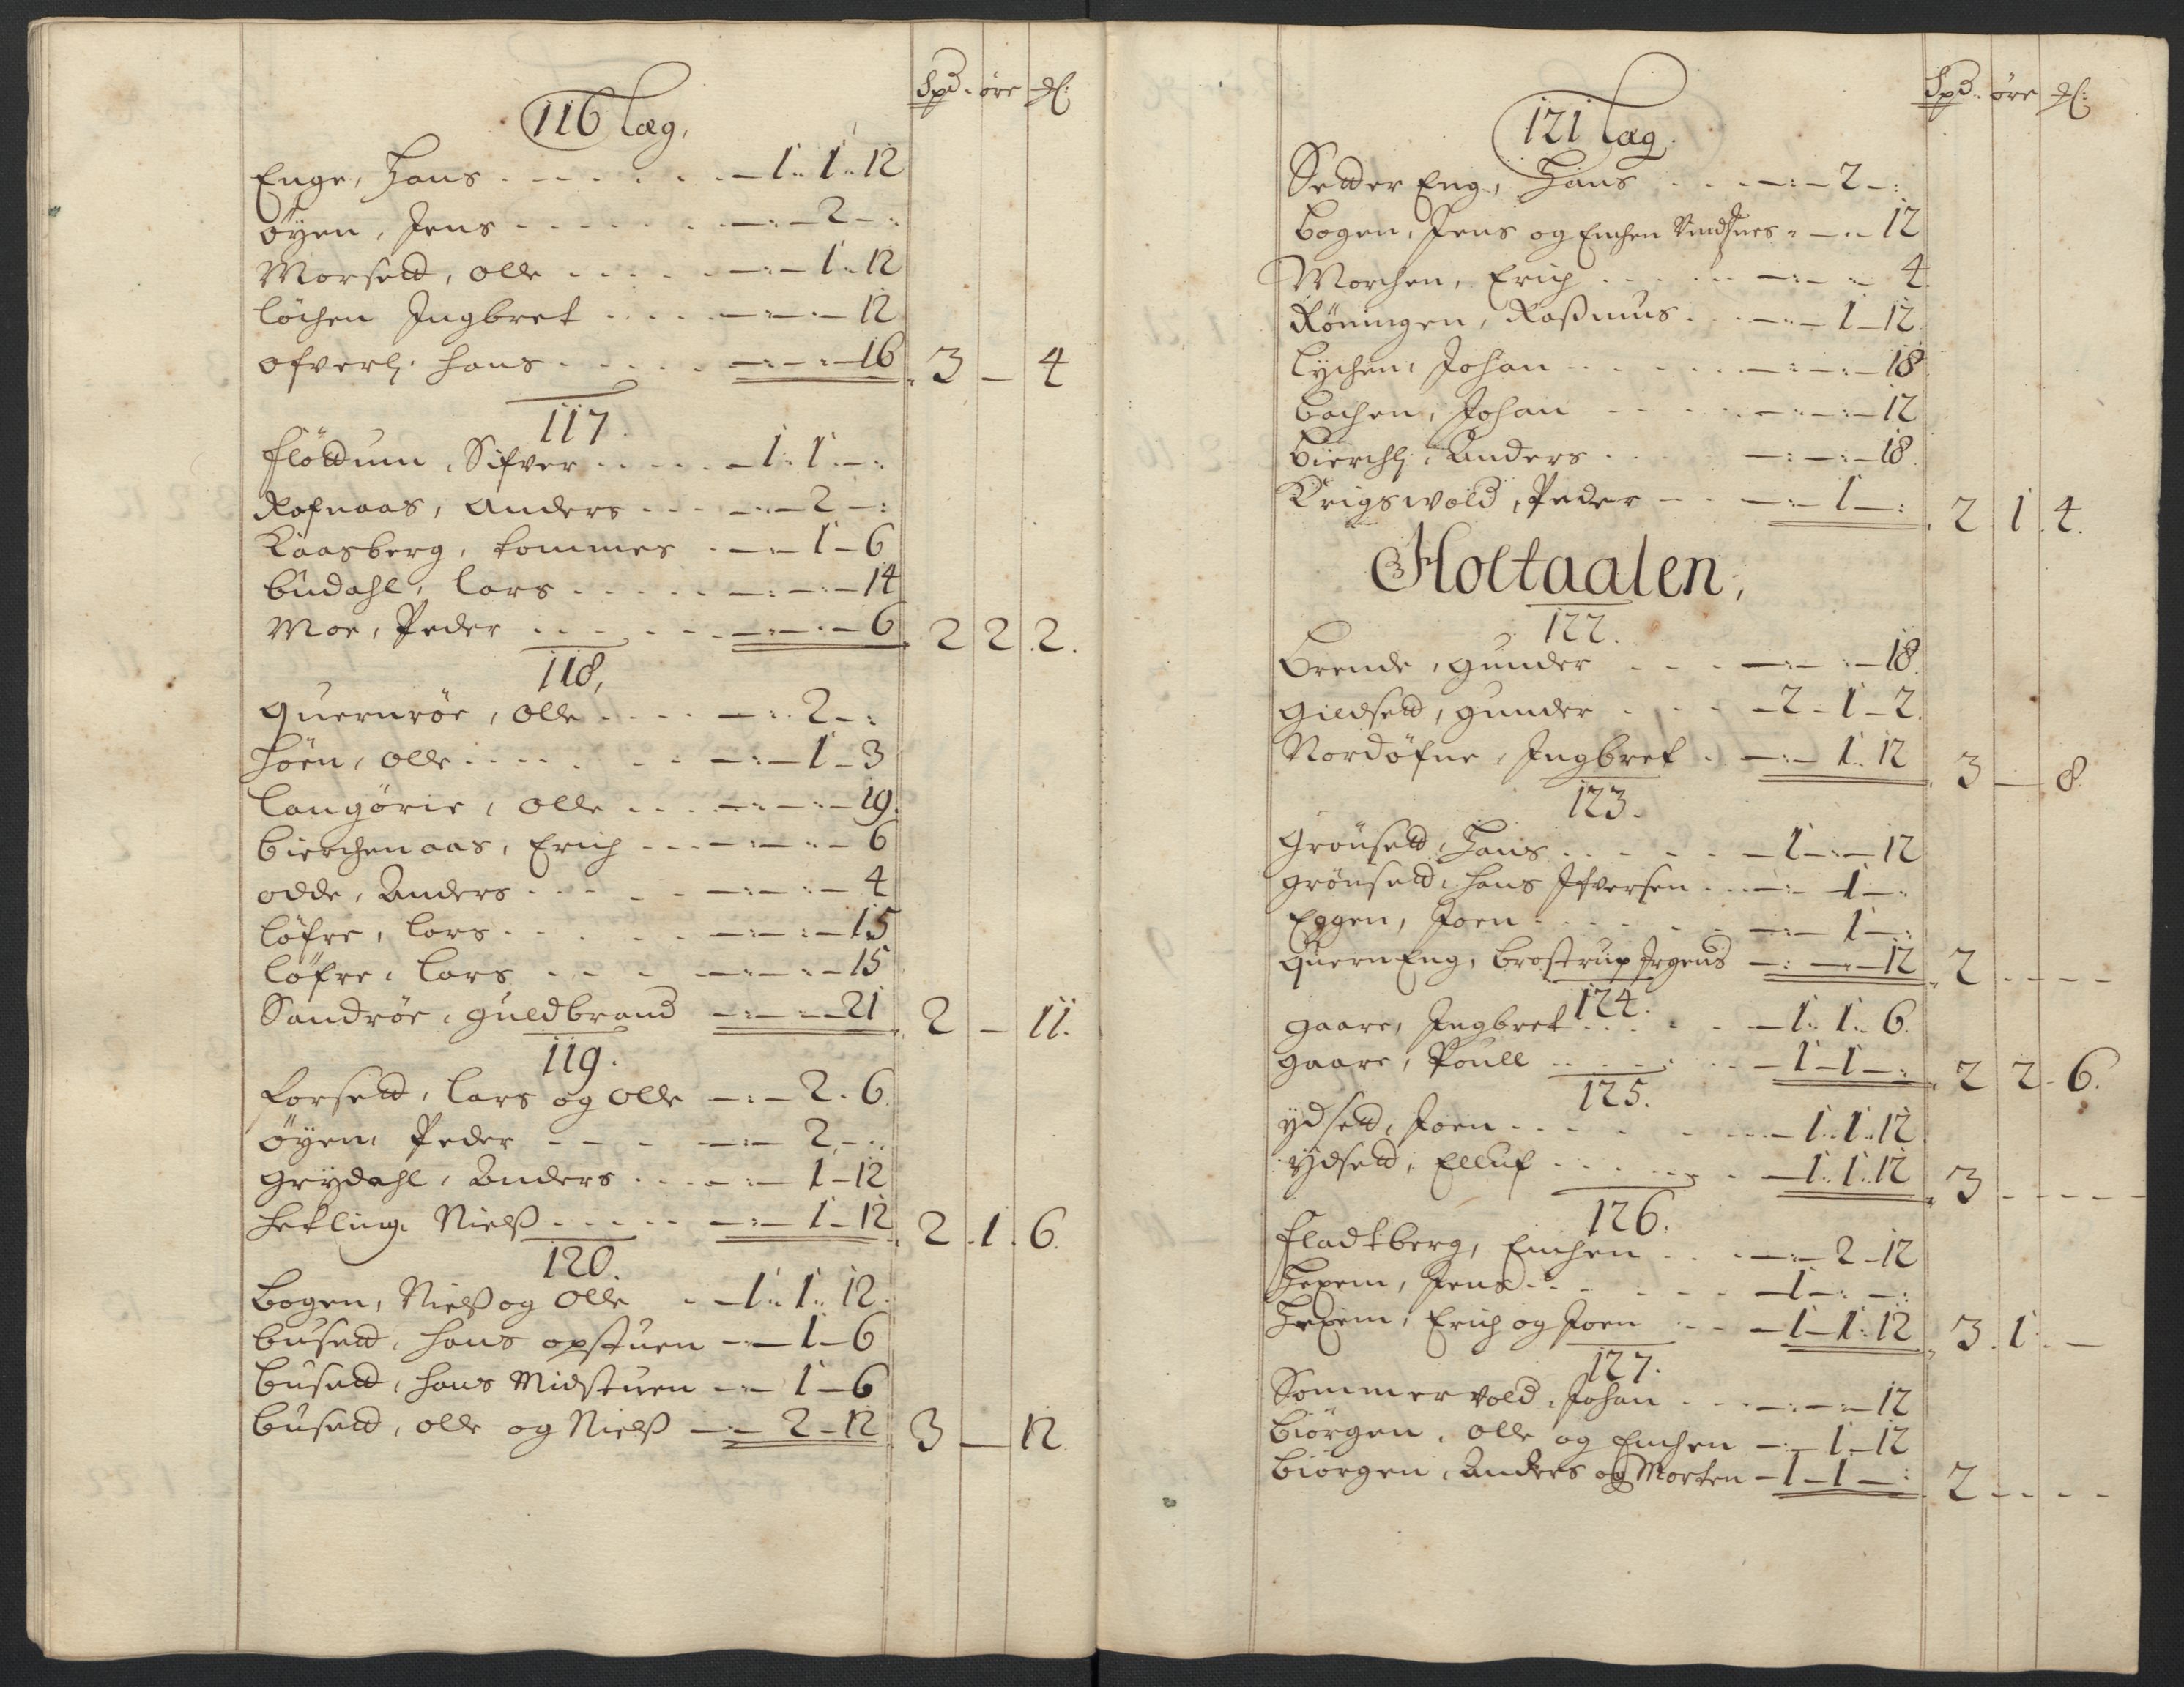 Spd. øre ₰:
116 Læg,
Enge, Hans . . . . . . – 1 .. 1 .. 12
Øyen, Jens . . . . . . –:– 2 – :
Morsett, Olle . . . . . –:– 1 .. 12
Løchen Ingbret . . . . –:–:– 12
Ofverlj. Hans . . . . . –:–:– 16 . 3 – 4
117.
Flöttum, Sifver . . . . . – 1 : 1 . – :
Rofnaas, Anders . . . –:– 2 – :
Kaasberg, Tommes . –:– 1 – 6
Budahl, Lars . . . . . –:–:– 14
Moe, Peder . . . . . –:–:– 6 . 2 2 . 2 .
118,
Quernrøe, Olle . . . . – : . 2 – :
Høen, Olle . . . . . . –:– 1 – 3
Langørie, Olle . . . –:–:– 19.
Bierchenaas, Erich . . . –:–:– 6
Odde, Anders . . . . . –:–:– 4
Løfre, Lars . . . . . –:–:– 15
Løfre, Lars . . . . –:–:– 15
Sandrøe, Guldbrand –:–:– 21 . 2 – 11.
119.
Forsett, Lars og Olle –:– 2 . 6.
Øyen, Peder . . . . –:– 2 – :
Grydahl, Anders . . . –:– 1 – 12
Hetling, Nielß . . . . . –:– 1 – 12 . 2 . 1 . 6.
120.
Bogen, Nielß og Olle . – 1 .. 1 .. 12.
Busett, Hans Opstuen –:– 1 – 6
Busett, Hans Midstuen –:– 1 – 6
Busett, Olle og Nielß –:– 2 – 12 3 – 12.
Spd. øre ₰:
121 Læg.
Setter Eng, Hans . . . –:– 2 – :
Bogen, Jens og Enchen Vindsnes . – . . 12
Morchen, Erich . . . . . –:–:– 4.
Röningen, Raßmus . . . –:– 1 – 12.
Lychen, Johan . . . . . –:–:– 18.
Bachen, Johan . . . . –:–:– 12
Bierchlj, Anders . . . –:–:– 18.
Krigswold, Peder . . . –:– 1 – : . 2 . 1 . 4.
Holtaalen,
122.
Brende, Gunder . . . . –:–:– 18.
Gieldsett, Gunder . . . . – 2 – 1 – 2.
Nordøfne, Ingbret . –:– 1 .. 12 . 3 – 8.
123.
Grönsett, Hans . . . . . – 1 –:– 12
Grönsett, Hans Ifversen . . . –:– 1 – :
Eggen, Joen . . . . . . –:– 1 – :
Quern Eng, Brostrup Irgens –:–:– 12 . 2 . - - -
124.
Gaare, Ingbret . . . . . – 1 .. 1 .. 6.
Gaare, Poull . . . . . . . – 1 – 1 – : . 2 2 - 6.
125.
Ydsett, Joen . . . . . . . – 1 .. 1 .. 12.
Ydsett, Elluf . . . . . . . – 1 .. 1 .. 12 . 3 - - - -
126.
Fladtberg, Enchen . . . –:– 2 – 12
Hexem, Jens . . . . . . – 1 – : – :
Hexem, Erich og Joen . . . – 1 – 1 : 12 . 3 . 1 . –
127.
Sommervold, Johan . . . –:–:– 12
Biörgen, Olle og Enchen –:– 1 – 12
Biörgen, Anders og Morten – 1 – 1 – : . 2 - - - -